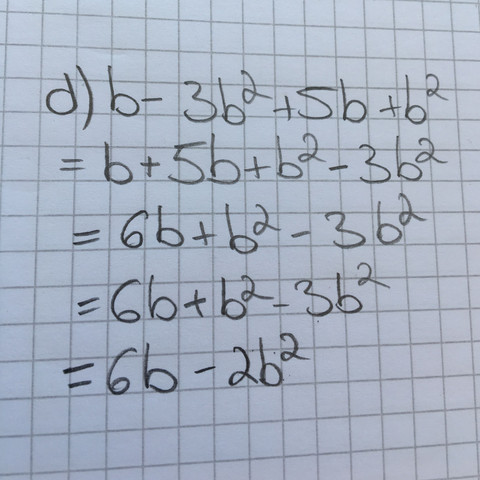 d) b - 3b² + 5b + b²
= b + 5b + b² - 3b²
= 6b + b² - 3b²
= 6b + b² - 3b²
= 6b - 2b²